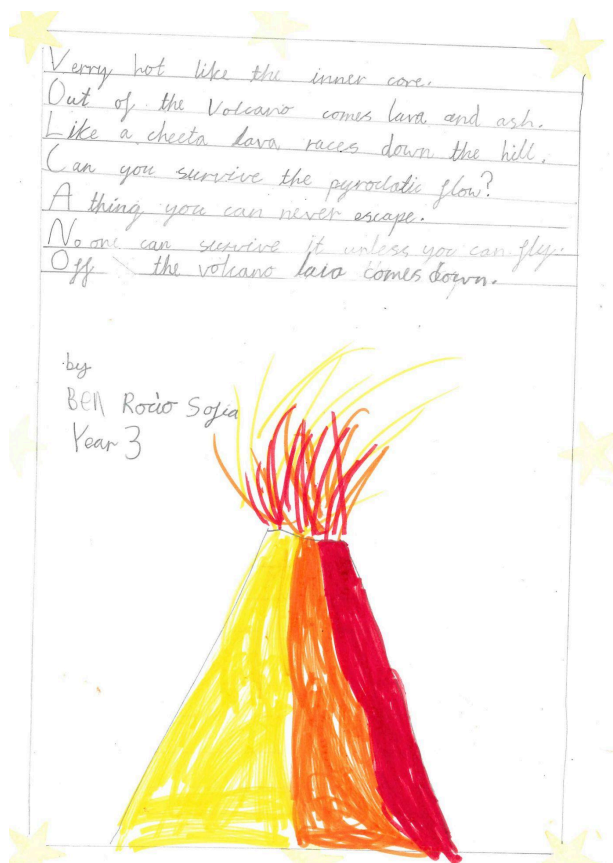 Verry hot like the inner core.
Out of the Volcano comes lava and ash.
Like a cheeta lava races down the hill.
Can you survive the pyroclatic flow?
A thing you can never escape.
No one can survive it unless you can fly.
Off the volcano lava comes down.
by
Ben Rocio Sofia
Year 3